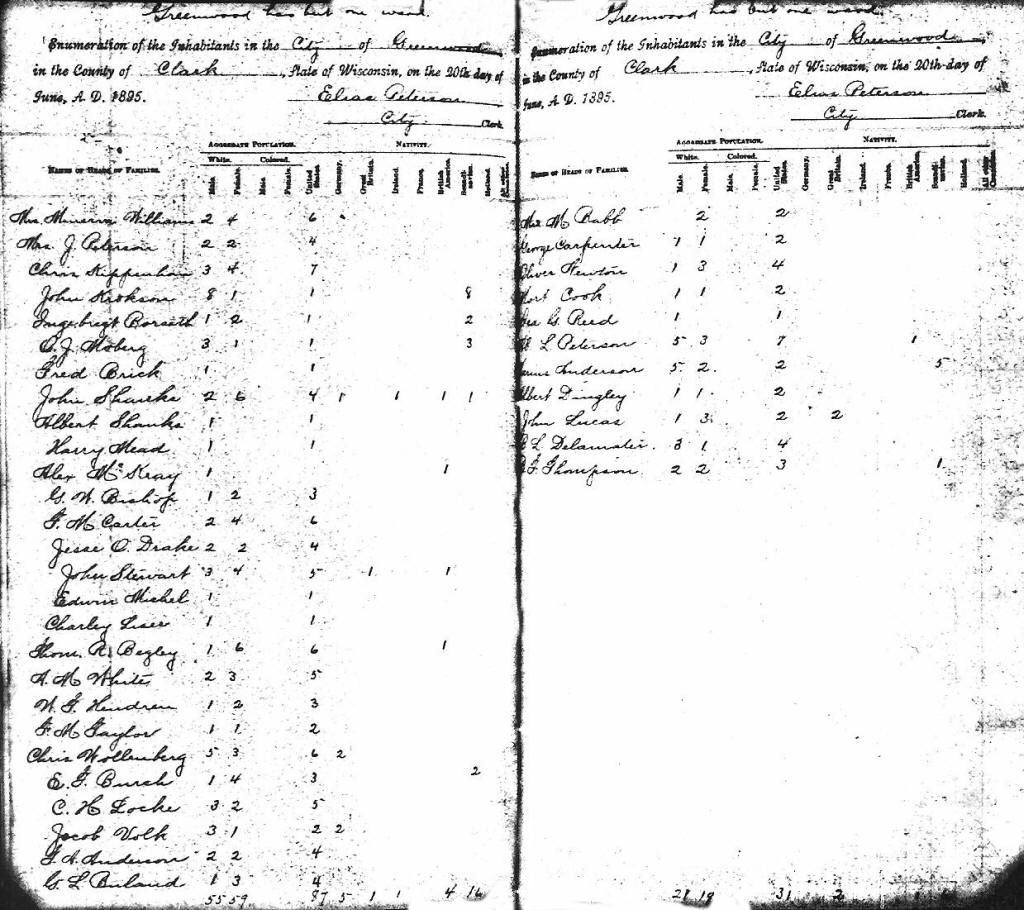 Greenwood has but one ward.
Enumeration of the Inhabitants in the City of Greenwood
in the County of Clark, State of Wisconsin, on the 20th day of
June, A. D. 1895. Elias Peterson
City Clerk.
AGGREGATE POPULATION. NATIVITY.
White. Colored.
NAMES OF HEADS OF FAMILIES. Male. Female. Male. Female. United States. Germany. Great Britain. Ireland. France. British America. Scandinavian. Holland. All other
Mrs. Minerva Williams 2 4 6
Mrs. J. Peterson 2 2 4
Chris Kippenhan 3 4 7
John Krokson 8 1 1 8
Ingebrigt Borseth 1 2 1 2
O. J. Moberg 3 1 1 3
Fred Brick 1 1
John Shanks 2 6 4 1 1 1 1
Albert Shanks 1 1
Harry Mead 1 1
Alex McKray 1 1
G. W. Bishop 1 2 3
F. M. Carter 2 4 6
Jesse O. Drake 2 2 4
John Stewart 3 4 5 1 1
Edwin Michel 1 1
Charley 1 1
Thom. R. Begley 1 6 6 1
A. M. White 2 3 5
W. F. Hendren 1 2 3
F. M. Taylor 1 1 2
Chris Wollenberg 5 3 6 2
E. F. Burch 1 4 3 2
C. H. Locke 3 2 5
Jacob Volk 3 1 2 2
F. A. Anderson 2 2 4
G. L. Buland 1 3 4
55 59 97 5 1 1 4 16
Greenwood has but one ward.
Enumeration of the Inhabitants in the City of Greenwood,
in the County of Clark, State of Wisconsin, on the 20th day of
June, A. D. 1895. Elias Peterson
City Clerk.
AGGREGATE POPULATION. NATIVITY.
White. Colored.
NAMES OF HEADS OF FAMILIES. Male. Female. Male. Female. United States. Germany. Great Britain. Ireland. France. British America. Scandinavian. Holland. All other
M Babb 2 2
George Carpenter 1 1 2
Oliver Newton 1 3 4
Mort Cook 1 1 2
G. Reed 1 1
L Peterson 5 3 7 1
Anderson 5 2 2 5
Albert Dingley 1 1 2
John Lucas 1 3 2 2
L Delamater. 3 1 4
F. Thompson 2 2 3 1
21 19 31 2